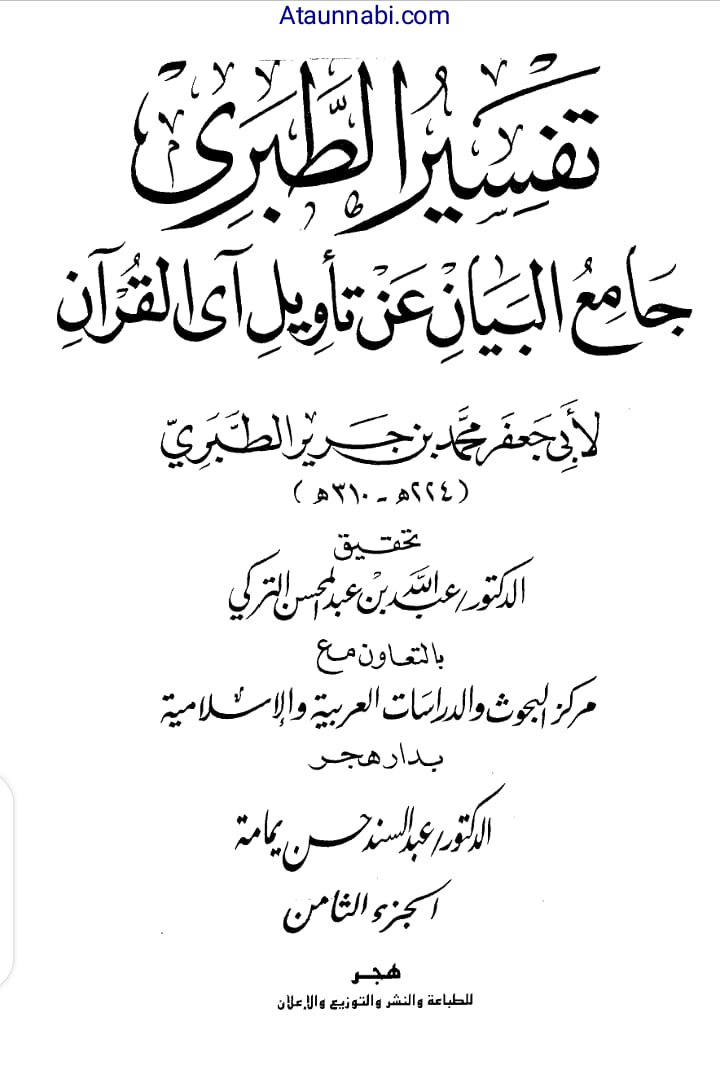 Ataunnabi.com
تَفسِير الطَّبَرِى
جَامِعُ البَيَانِ عَنْ تأوِيلِ آى القُرْآنِ
لأَبِى جَعفَر مُحمَّد بن جَرير الطَّبَرِيّ
(٢٢٤هـ - ٣١٠هـ)
تحقيق
الدكتور/عبد الله بن عبد المحسن التركي
بالتعاون مع
مركز البحوث والدراسات العربية والإسلامية
بدار هجر
الدكتور/عبد السند حسن يمامة
الجزء الثامن
هجر
للطباعة والنشر والتوزيع والإعلان